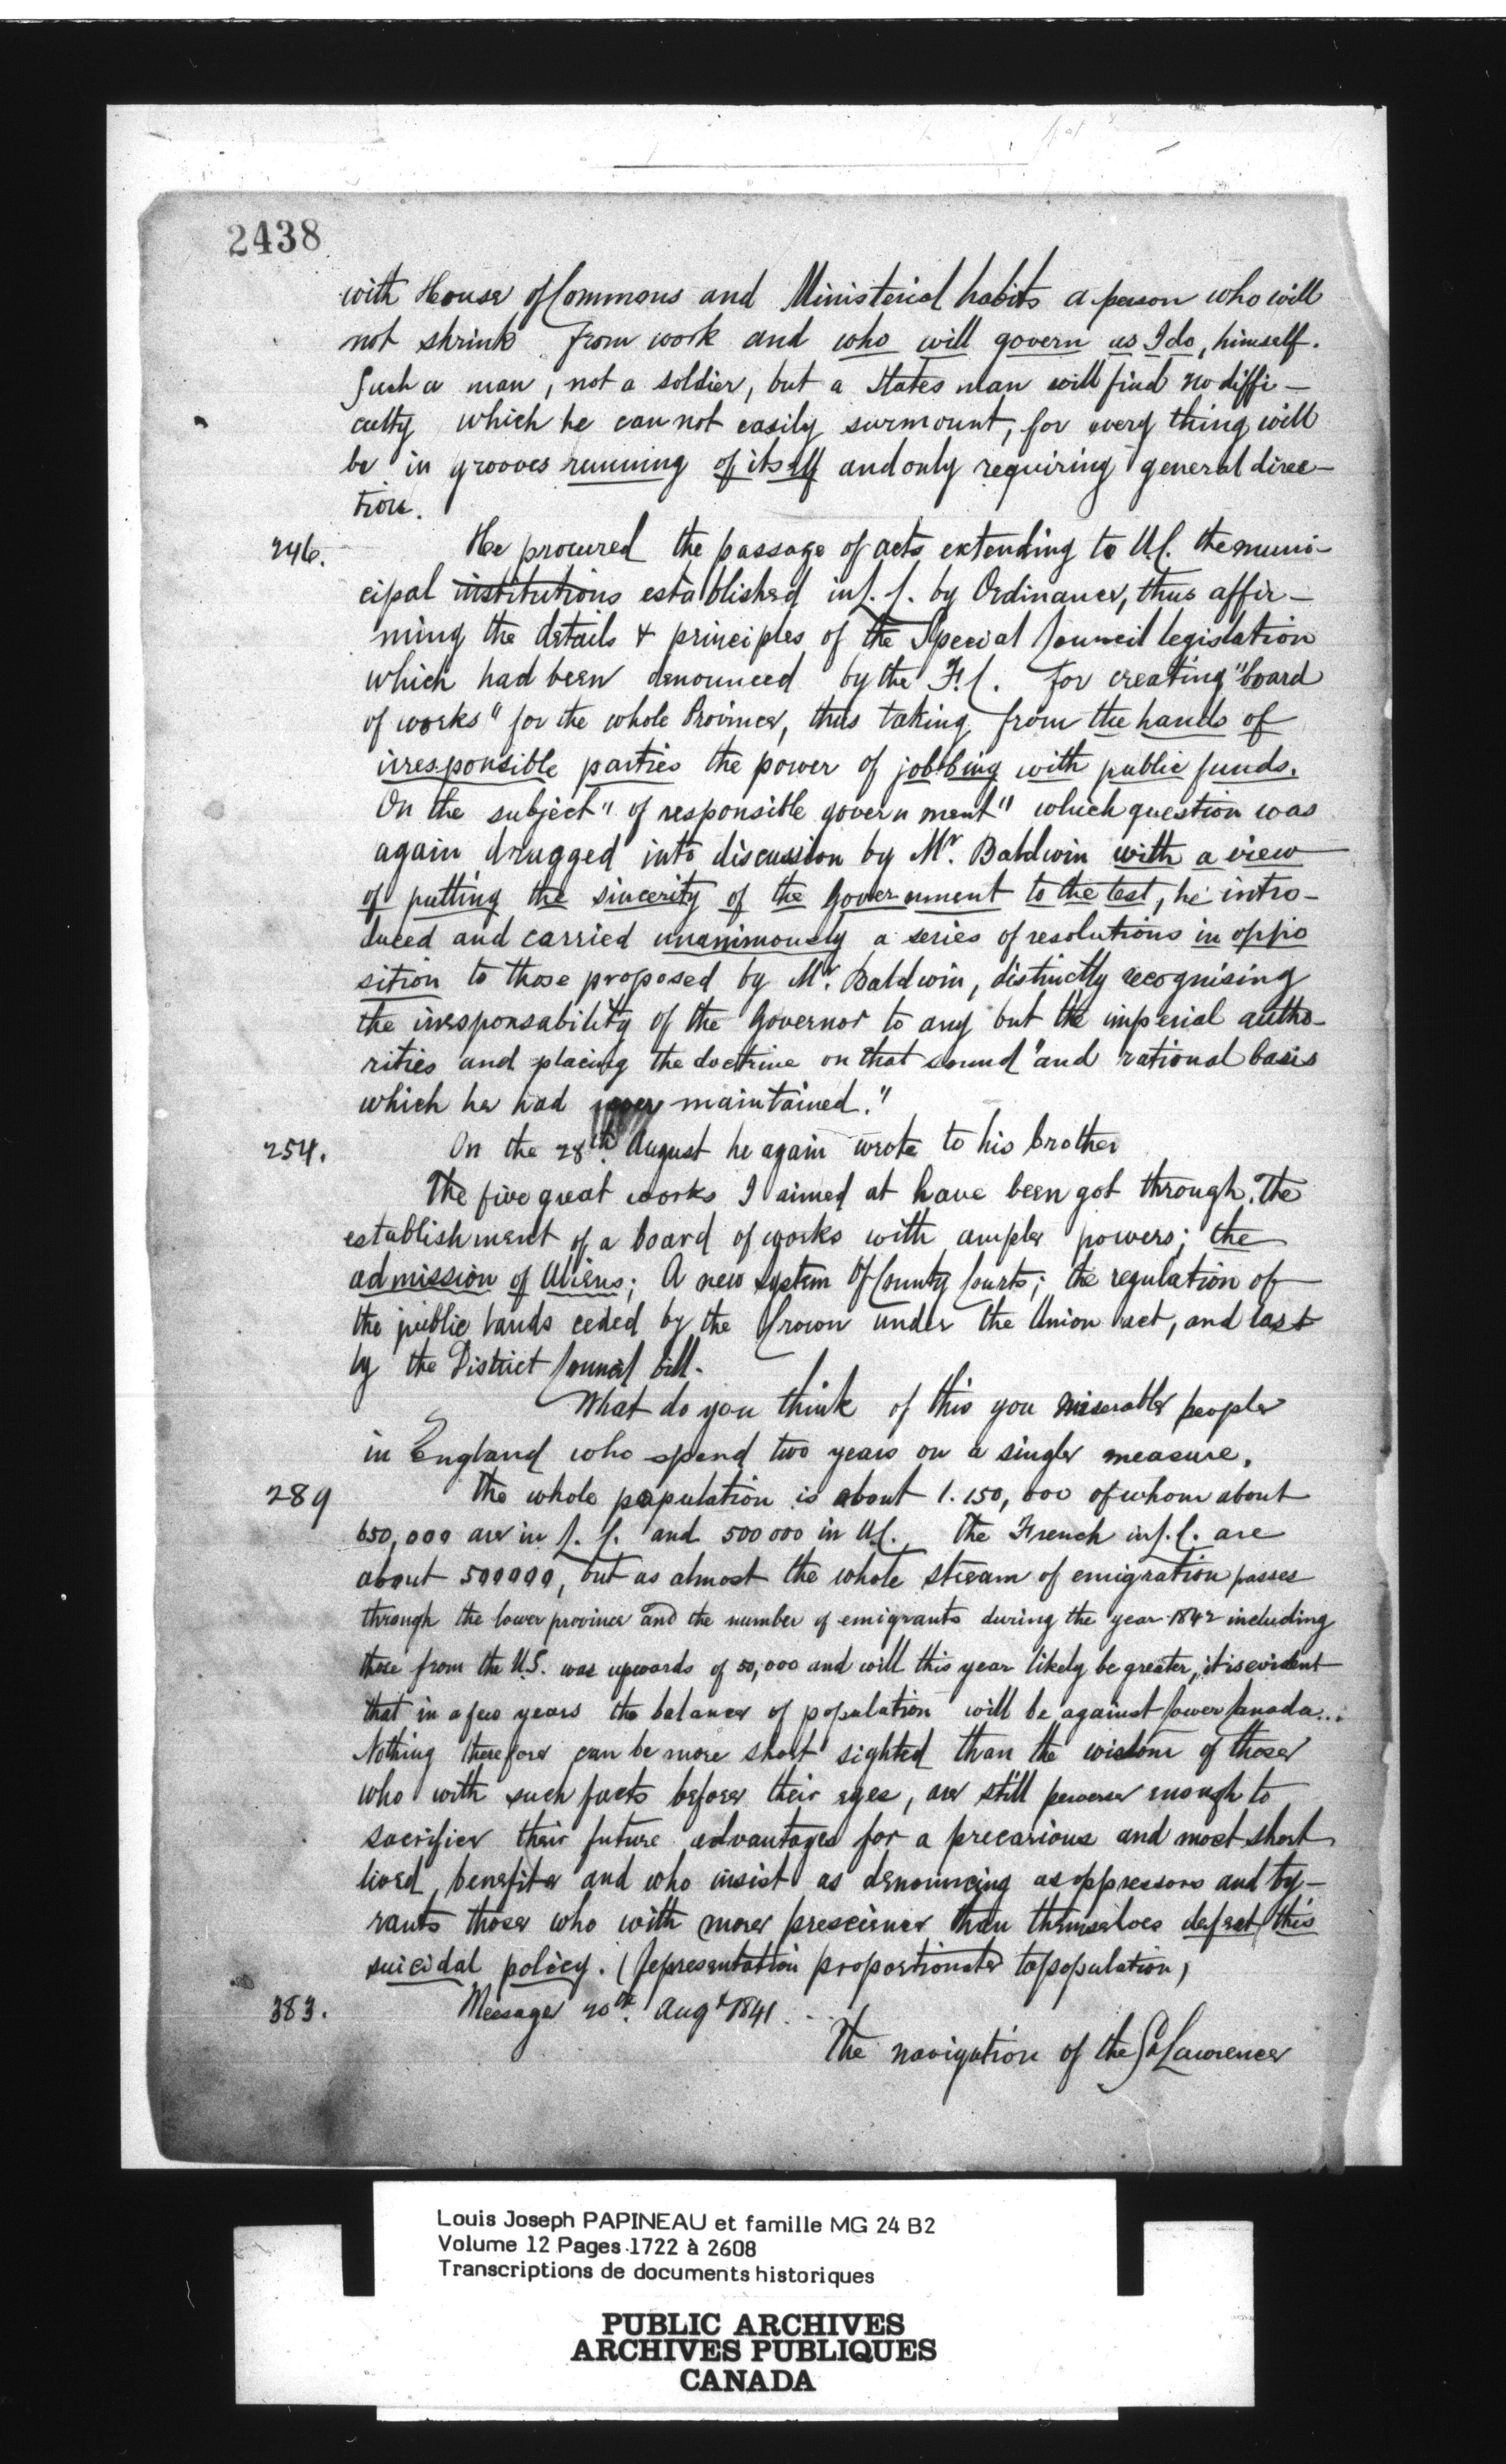 2438
with House of Commons and Ministerial habits a person who will
not shrink from work and who will govern as I do, himself.
Such a man, not a soldier, but a States man will find no diffi-
culty which he can not easily surmount, for every thing will
be in grooves running of itself and only requiring general direc-
tion.
246. He procured the passage of acts extending to U.C. the muni-
cipal institutions established in L.C. by Ordinance, thus affir-
ming the details & principles of the Special Council legislation
which had been denounced by the F.C. for creating "board
of works" for the whole Province, thus taking from the hands of
irresponsible parties the power of jobbing with public funds.
On the subject "of responsible government" which question was
again dragged into discussion by Mr. Baldwin with a view
of putting the sincerity of the Government to the test, he intro-
duced and carried unanimously a series of resolutions in oppo
sition to those proposed by Mr. Baldwin, distinctly recognising
the irresponsability of the Governor to any but the imperial autho-
rities and placing the doctrine on that sound "and rational basis
which he had maintained."
254. On the 28th. August he again wrote to his brother
The five great works I aimed at have been got through. The
establishment of a board of works with ample powers; the
admission of Aliens; A new system of County Courts; the regulation of
the public lands ceded by the Crown under the Union act, and last
ly the District Council bill.
What do you think of this you miserable people
in England who spend two years on a single measure.
289 The whole population is about 1.150,000 of whom about
650,000 are in L.C. and 500000 in U.C. The French in L.C. are
about 500000, but as almost the whole stream of emigration passes
through the lower province and the number of emigrants during the year 1842 including
those from the U.S. was upwards of 50,000 and will this year likely be greater, it is evident
that in a few years the balance of population will be against Lower Canada...
Nothing therefore can be more short sighted than the wisdom of those
who with such facts before their eyes, are still perverse enough to
sacrifice their future advantages for a precarious and most short
lived benefits and who insist as denouncing as oppressors and ty-
rants those who with more prescience than themselves defeat this
suicidal policy. (Representation proportionate to population)
383. Message 20th. Augt 1841. ..
The navigation of the St Lawrence
Louis Joseph PAPINEAU et famille MG 24 B2
Volume 12 Pages 1722 à 2608
Transcriptions de documents historiques
PUBLIC ARCHIVES
ARCHIVES PUBLIQUES
CANADA